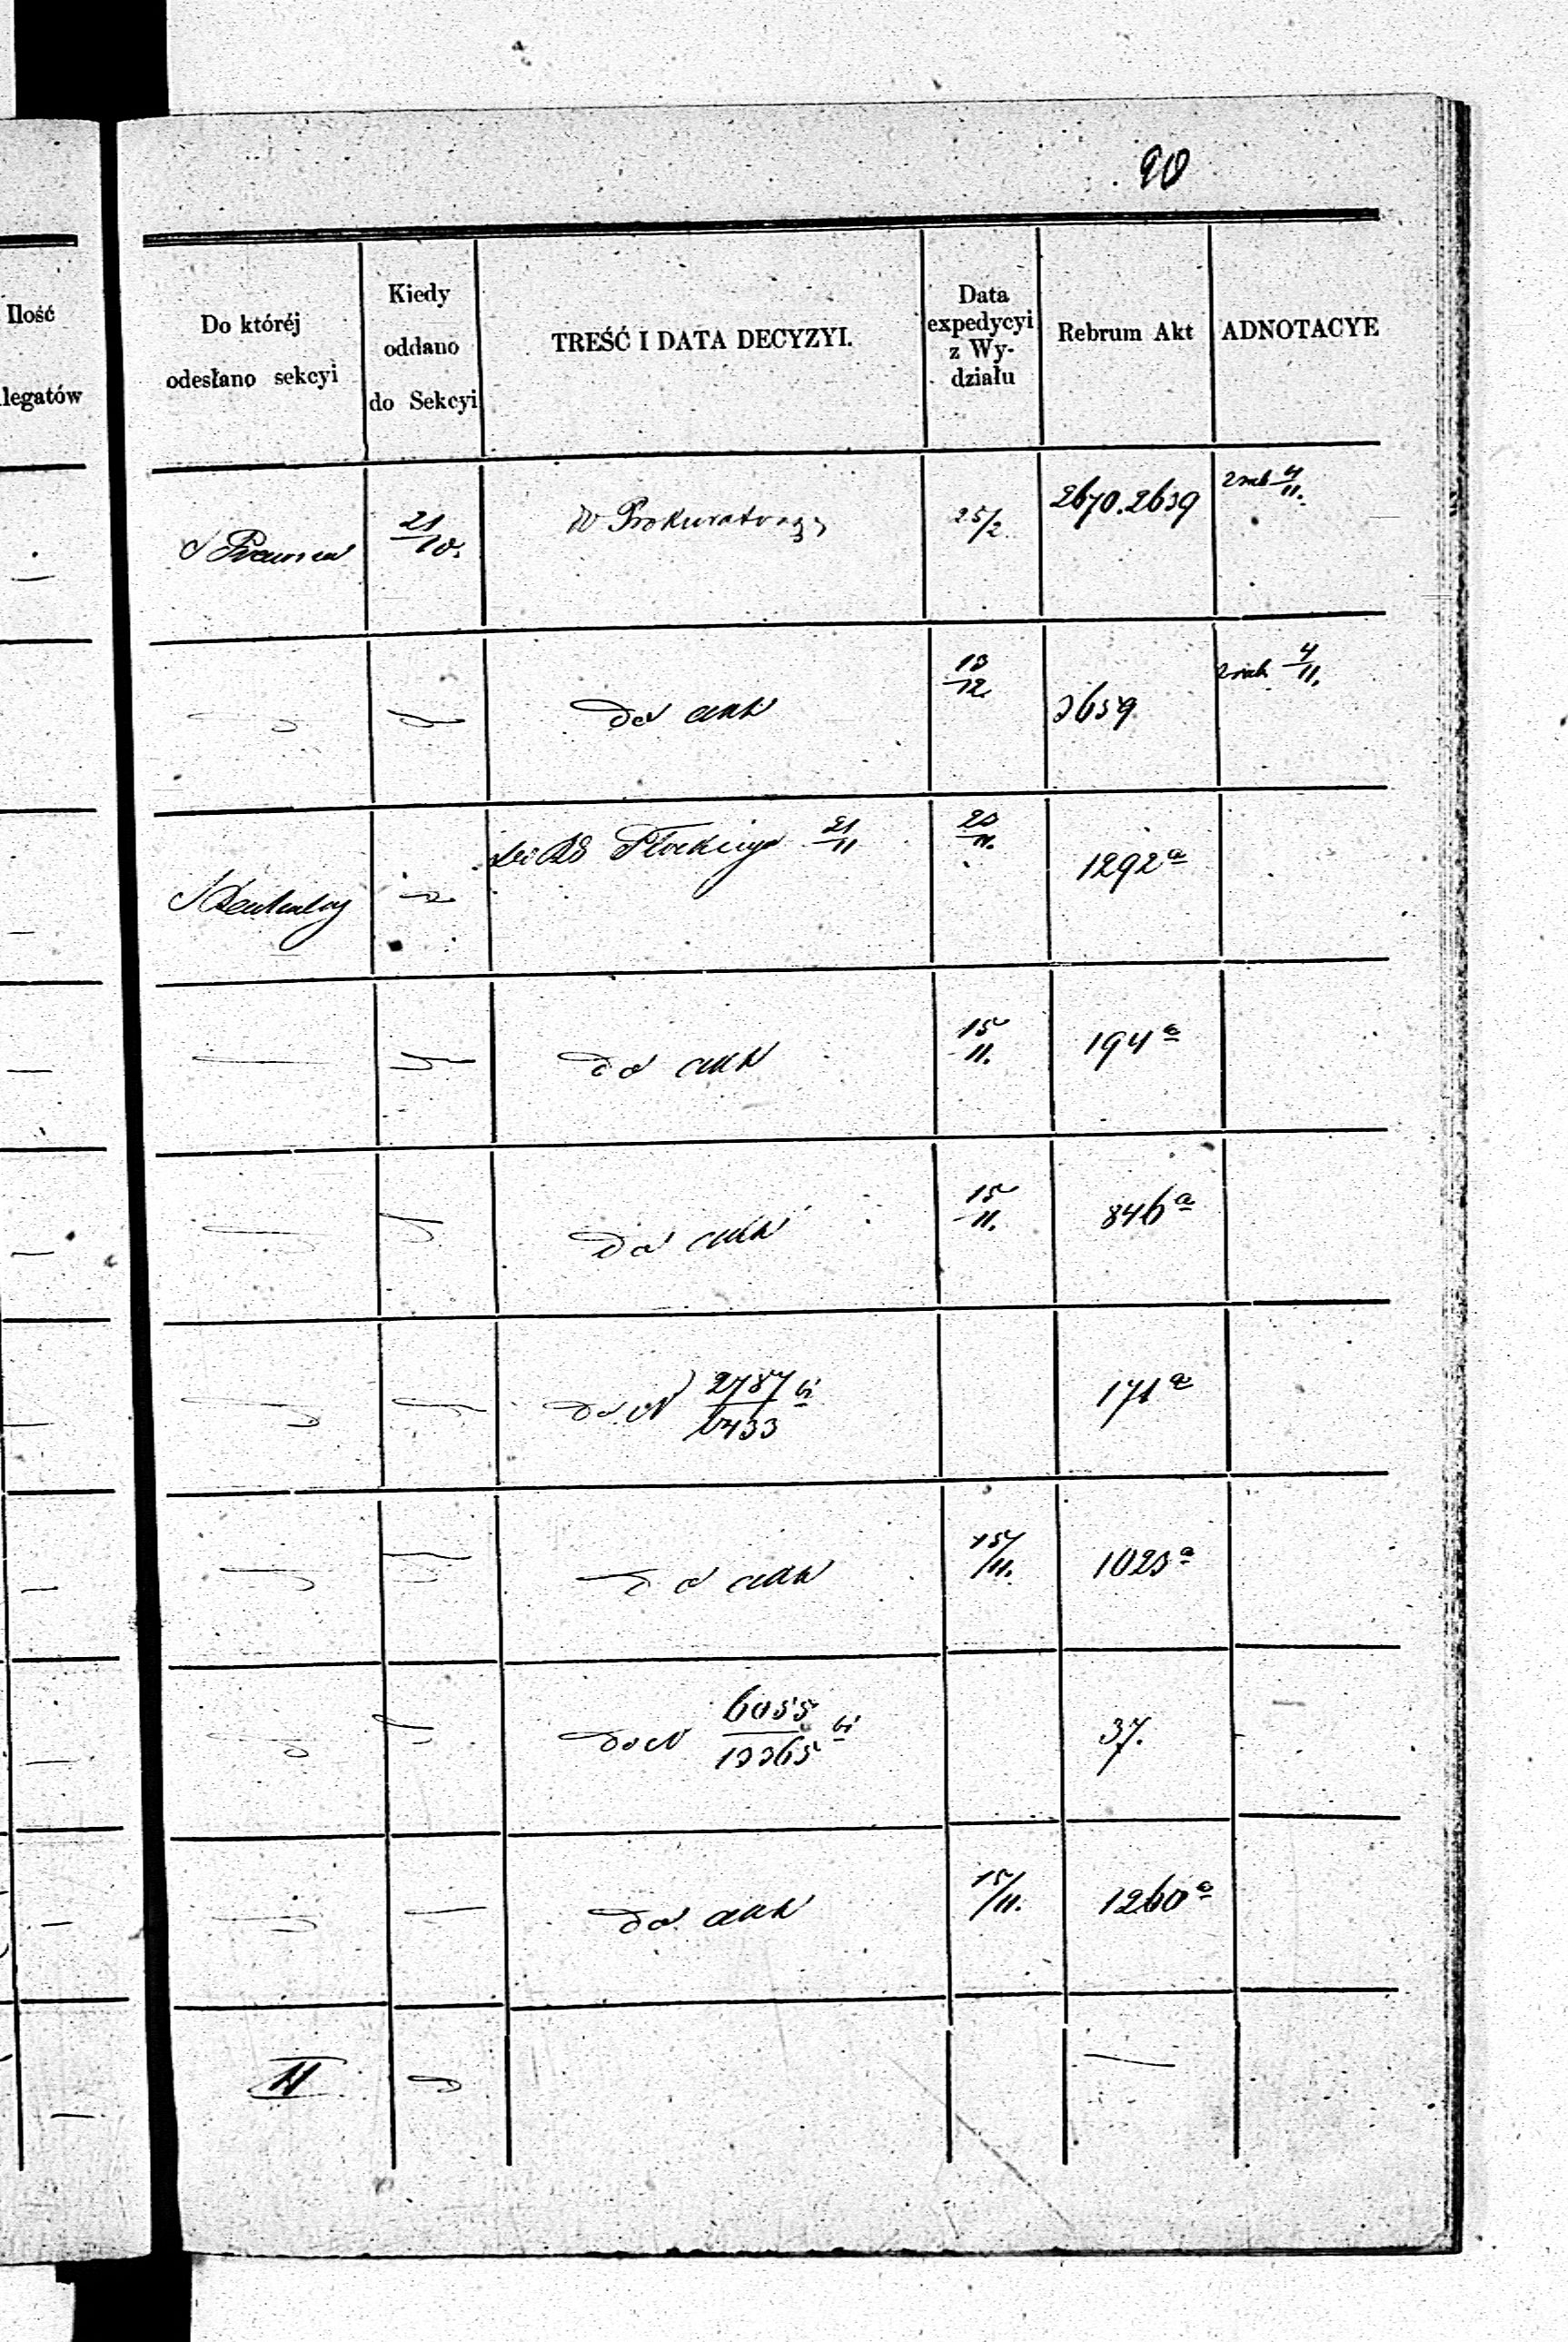 90
Ilość
legatów
Do któréj
odesłano sekcyi
Kiedy
oddano
do Sekcyi
TREŚĆ I DATA DECYZYI.
Data
expedycyi
z Wy-
działu
Rebrum Akt
ADNOTACYE
21/10.
W Prokuratoryi
25/2
2670.2639
4/11.
do akt
13/12
3659
4/11.
Płockiego 21/11
23/11.
1292 a
do akt
15/11.
194 a
do akt
15/11.
846 a
do N 2787/6433
171 a
do akt
15/11.
1023 a
do N 6055/13365
37.
do akt
15/11.
1260 a
II